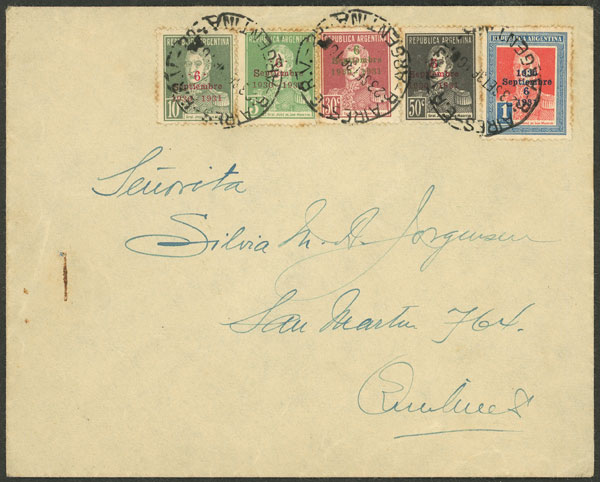 REPUBLICA ARGENTINA
6
Septiembre
1930 - 1931
10 c
REPUBLICA ARGENTINA
6
Septiembre
1930 - 1931
REPUBLICA ARGENTINA
6
Septiembre
1930 - 1931
30 c
REPUBLICA ARGENTINA
6
50 c
REPUBLICA ARGENTINA
Septiembre
6
1
Señorita
Silvia M. A. Jorgensen
San Martin 764.
Quilmes